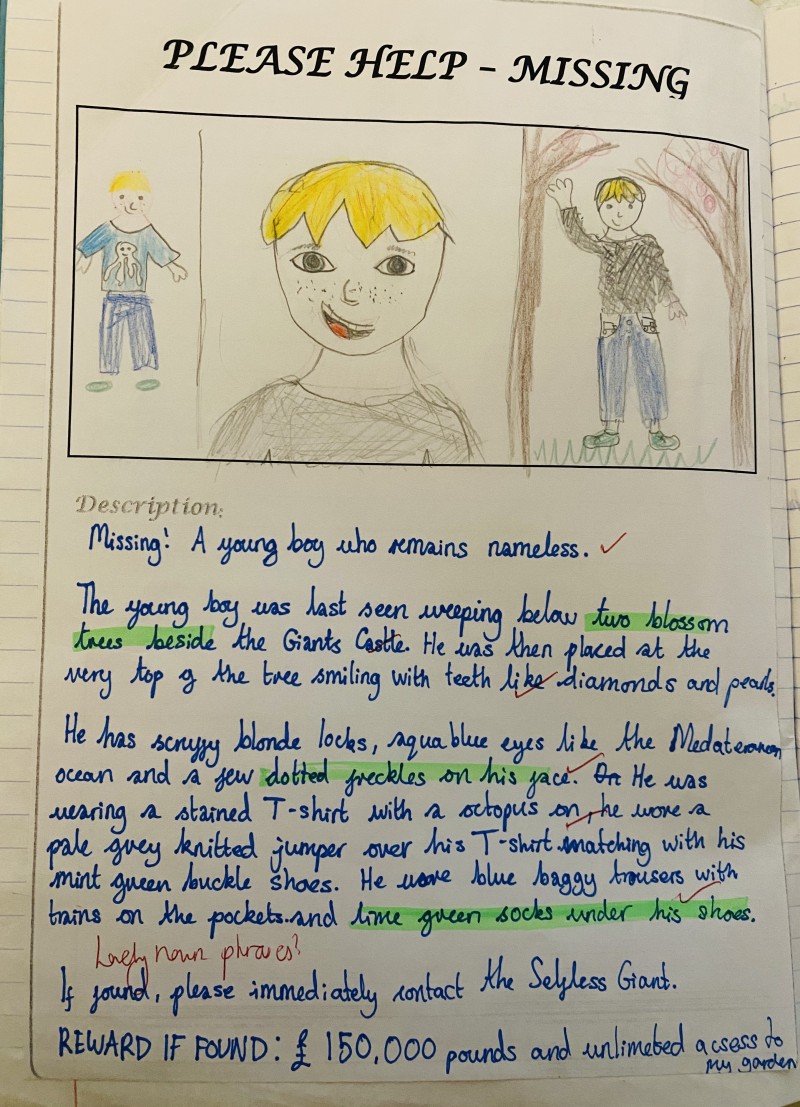 PLEASE HELP – MISSING
Description:
Missing! A young boy who remains nameless.
The young boy was last seen weeping below two blossom
trees beside the Giants Castle. He was then placed at the
very top of the tree smiling with teeth like diamonds and pearls.
He has scruffy blonde locks, aquablue eyes like the Medateranan
ocean and a few dotted freckles on his face. He was
wearing a stained T-shirt with a octopus on, he wore a
pale grey knitted jumper over his T-shirt matching with his
mint green buckle shoes. He wore blue baggy trousers with
trains on the pockets and lime green socks under his shoes.
Lovely noun phrases!
If found, please immediately contact the Selfless Giant.
REWARD IF FOUND: £ 150,000 pounds and unlimeted acsess to
my garden